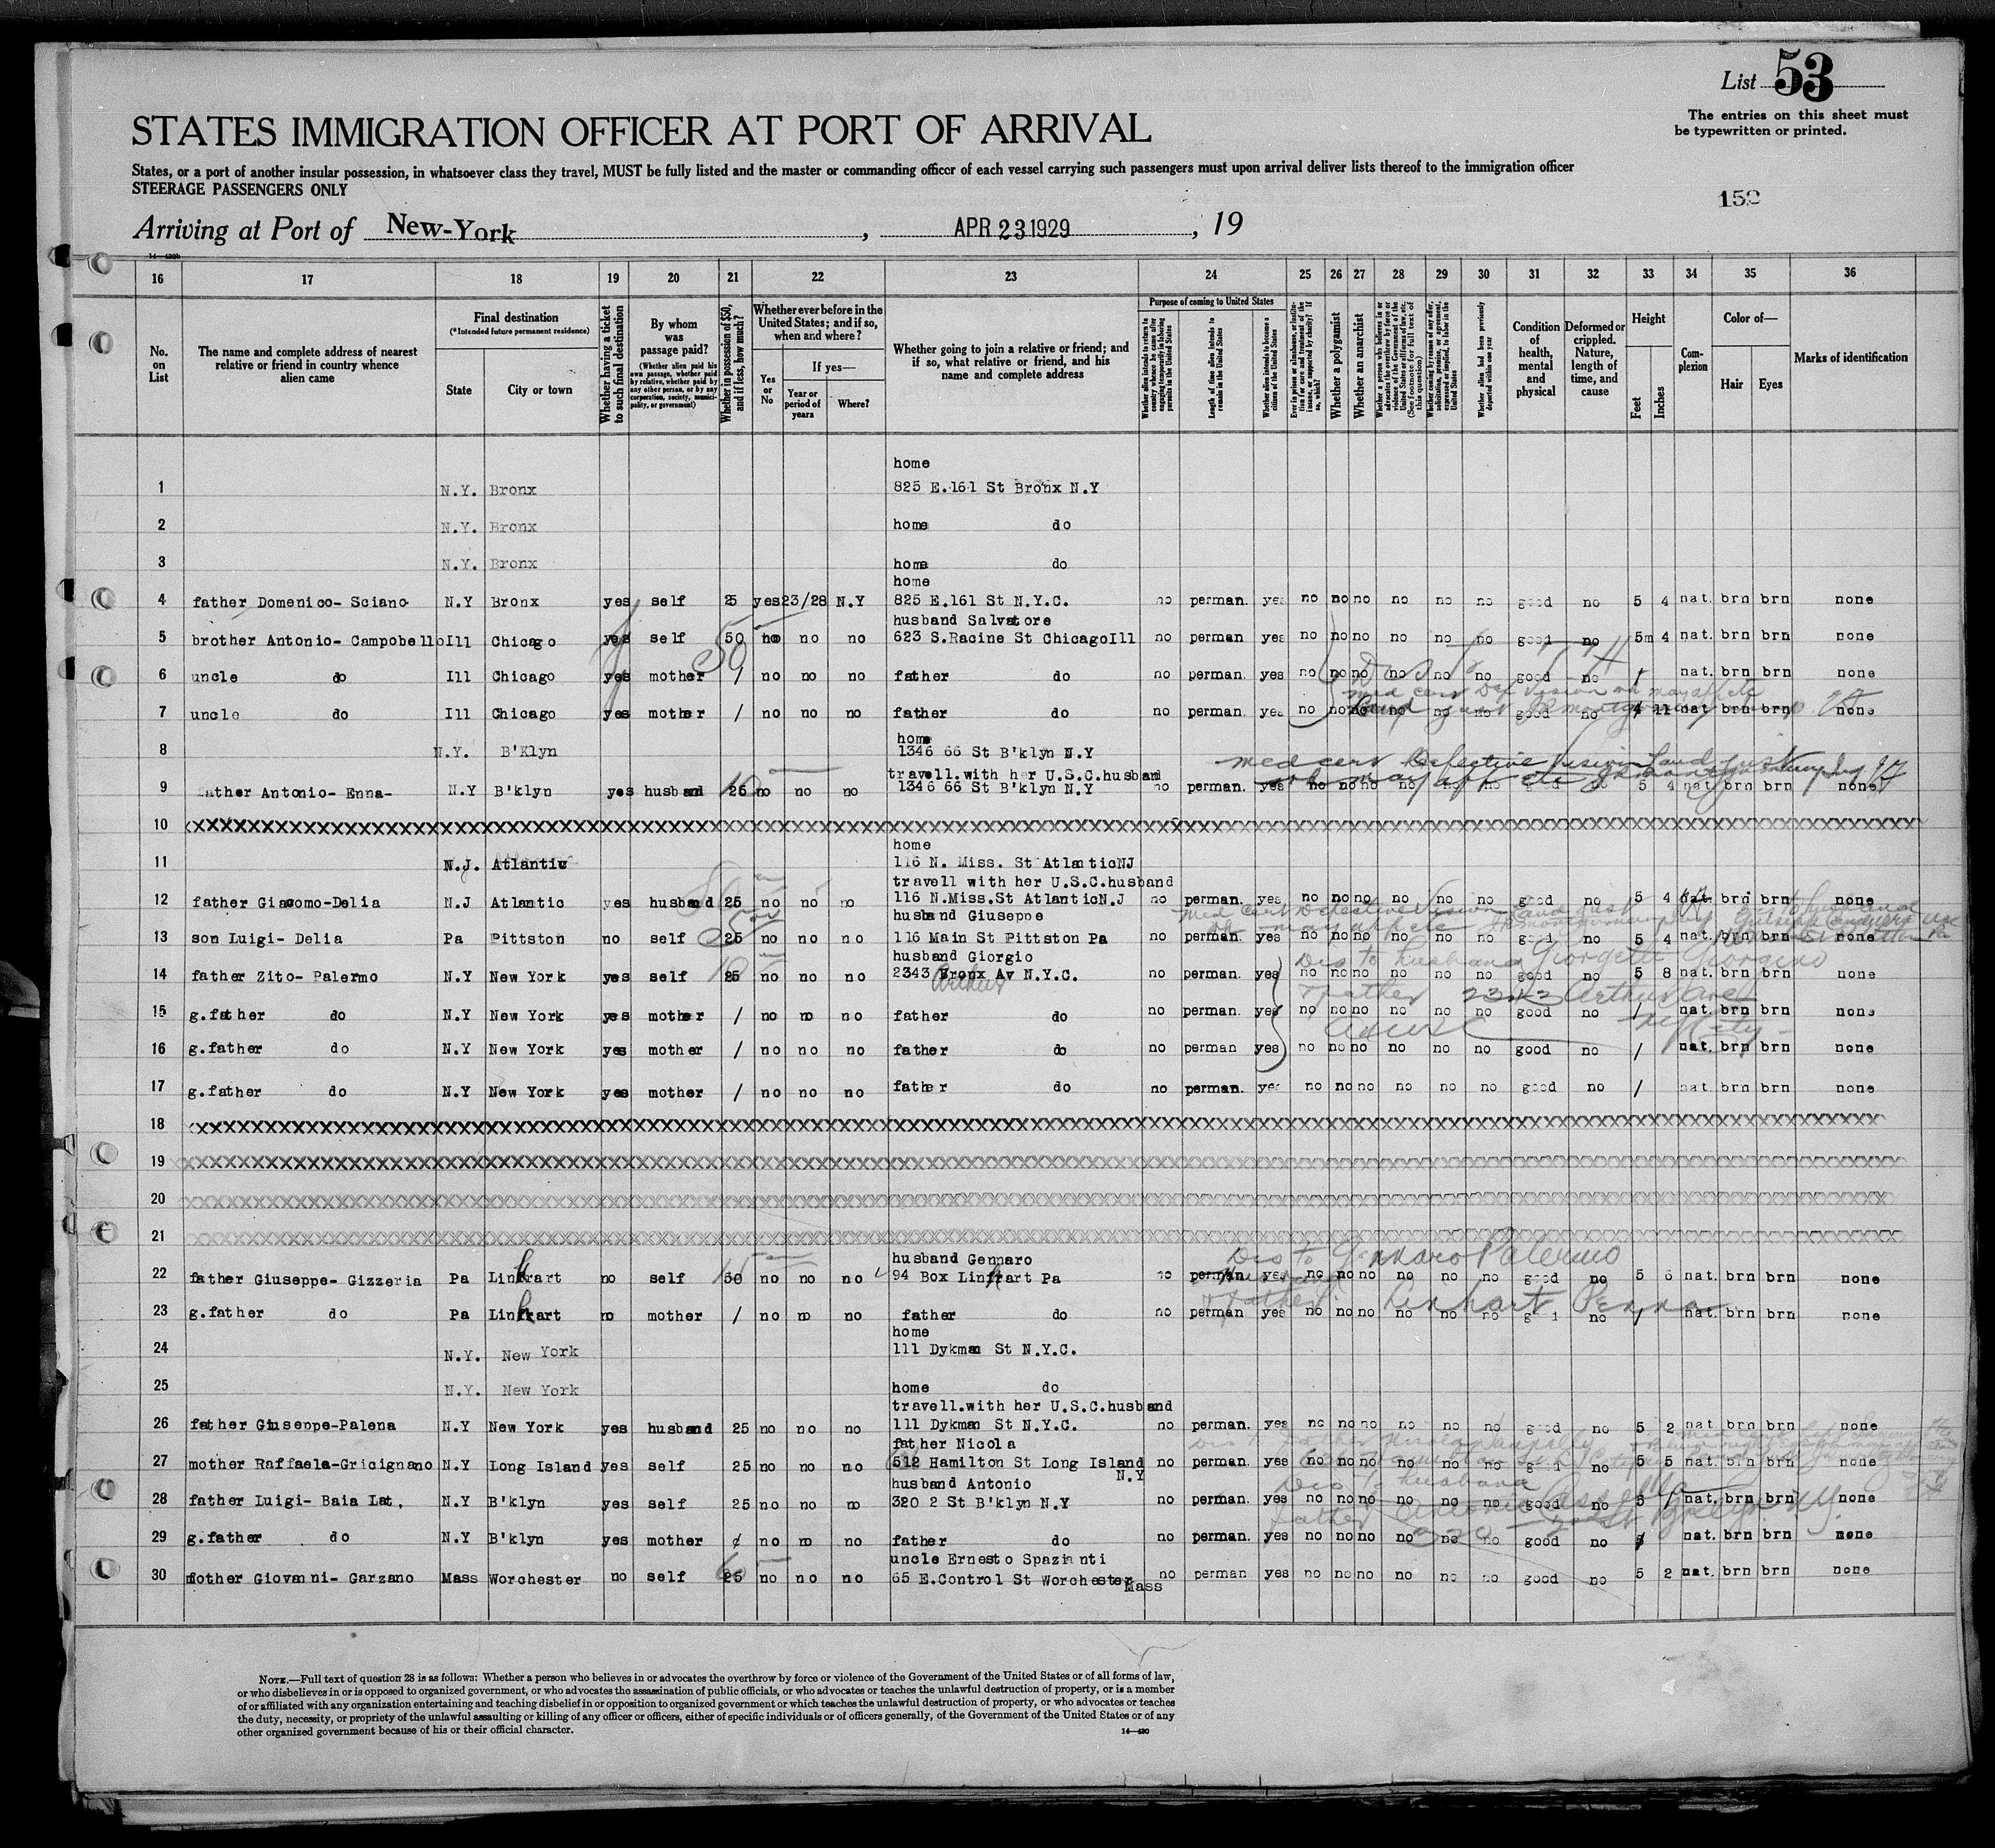 List 53
The entries on this sheet must
be typewritten or printed.
STATES IMMIGRATION OFFICER AT PORT OF ARRIVAL
States, or a port of another insular possession, in whatsoever class they travel, MUST be fully listed and the master or commanding officer of each vessel carrying such passengers must upon arrival deliver lists thereof to the immigration officer
STEERAGE PASSENGERS ONLY
152
Arriving at Port of New-York, APR 23 1929, 19
16 17 18 19 20 21 22 23 24 25 26 27 28 29 30 31 32 33 34 35 36
No. on List
The name and complete address of nearest relative or friend in country whence alien came
Final destination
(*Intended future permanent residence)
State
City or town
Whether having a ticket to such final destination
By whom was passage paid?
(Whether alien paid his own passage, whether paid by relative, whether paid by any other person, or by any corporation, society, municipality, or government)
Whether in possession of $50, and if less, how much?
Whether ever before in the United States; and if so, when and where?
Yes or No
If yes—
Year or period of years
Where?
Whether going to join a relative or friend; and if so, what relative or friend, and his name and complete address
Purpose of coming to United States
Length of time alien intends to remain in the United States
Whether alien intends to become a citizen of the United States
Whether a polygamist
Whether an anarchist
Whether alien had been previously deported within one year
Condition of health, mental and physical
Deformed or crippled. Nature, length of time, and cause
Height
Feet
Inches
Complexion
Color of—
Hair
Eyes
Marks of identification
home
1 N.Y. Bronx 825 E.161 St Bronx N.Y
2 N.Y. Bronx home do
3 N.Y. Bronx home do
home
4 father Domenico- Sciano N.Y Bronx yes self 25 yes 23/28 N.Y 825 E.161 St N.Y.C. no perman. yes no no no no no no good no 5 4 nat. brn brn none
husband Salvatore
5 brother Antonio- Campobello Ill Chicago yes self 50 no no no 623 S.Racine St Chicago Ill no perman yes no no no no no no good no 5m 4 nat. brn brn none
6 uncle do Ill Chicago yes mother / no no no father do no perman. yes no no no no no no good no / nat. brn brn none
7 uncle do Ill Chicago yes mother / no no no father do no perman. yes no no no no no no good no 4 11 nat brn brn none
home
8 N.Y. B'Klyn 1346 66 St B'klyn N.Y
travell.with her U.S.C.husband
9 father Antonio- Enna- N.Y B'klyn yes husband 25 no no no 1346 66 St B'klyn N.Y no perman. yes no no no no no no good no 5 4 nat. brn brn none
10 XXXXXXXXXXXXXXXXXXXX
home
11 N.J. Atlantic 116 N. Miss. St AtlanticNJ
travell with her U.S.C.husband
12 father Giacomo-Delia N.J Atlantic yes husband 25 no no no 116 N.Miss.St AtlanticN.J no perman. yes no no no no no no good no 5 4 nat. brn brn none
husband Giuseppe
13 son Luigi- Delia Pa Pittston no self 25 no no no 116 Main St Pittston Pa no perman. yes no no no no no no good no 5 4 nat. brn brn none
husband Giorgio
14 father Zito- Palermo N.Y New York yes self 25 no no no 2343 Bronx Av N.Y.C. no perman. yes no no no no no no good no 5 8 nat. brn brn none
Arthur
Dis to husband Giorgetti Giorgino
+ father 2343 Arthur Ave
15 g.father do N.Y New York yes mother / no no no father do no perman. yes no no no no no no good no / nat. brn brn none
16 g.father do N.Y New York yes mother / no no no father do no perman yes no no no no no no good no / nat. brn brn none
17 g.father do N.Y New York yes mother / no no no father do no perman. yes no no no no no no good no / nat. brn brn none
18 XXXXXXXXXXXXXXXXXXXX
19 XXXXXXXXXXXXXXXXXXXX
20 XXXXXXXXXXXXXXXXXXXX
21 XXXXXXXXXXXXXXXXXXXX
husband Gennaro
Dis to Gennaro Palermo
22 father Giuseppe- Gizzeria Pa Linhart no self 30 no no no 94 Box Linhart Pa no perman. yes no no no no no no good no 5 6 nat. brn brn none
+ father Linhart Penna
23 g.father do Pa Linhart no mother / no no no father do no perman yes no no no no no no good no / nat. brn brn none
home
24 N.Y. New York 111 Dykman St N.Y.C.
25 N.Y. New York home do
travell.with her U.S.C.husband
26 father Giuseppe-Palena N.Y New York yes husband 25 no no no 111 Dykman St N.Y.C. no perman. yes no no no no no no good no 5 2 nat brn brn none
father Nicola
27 mother Raffaela-Gricignano N.Y Long Island yes self 25 no no no 512 Hamilton St Long Island N.Y no perman. yes no no no no no no good no 5 5 nat. brn brn none
husband Antonio
Dis to husband
28 father Luigi- Baia Lat. N.Y B'klyn yes self 25 no no no 320 2 St B'klyn N.Y no perman. yes no no no no no no good no 5 / nat. brn brn none
29 g.father do N.Y B'klyn yes mother / no no no father do no perman. yes no no no no no no good no nat. brn brn none
uncle Ernesto Spazianti
30 mother Giovanni- Garzano Mass Worchester no self 25 no no no 65 E.Control St Worchester Mass no perman yes no no no no no no good no 5 2 nat. brn brn none
NOTE.—Full text of question 28 is as follows: Whether a person who believes in or advocates the overthrow by force or violence of the Government of the United States or of all forms of law,
or who disbelieves in or is opposed to organized government, or who advocates the assassination of public officials, or who advocates or teaches the unlawful destruction of property, or is a member
of or affiliated with any organization entertaining and teaching disbelief in or opposition to organized government or which teaches the unlawful destruction of property, or who advocates or teaches
the duty, necessity, or propriety of the unlawful assaulting or killing of any officer or officers, either of specific individuals or of officers generally, of the Government of the United States or of any
other organized government because of his or their official character.
14—430